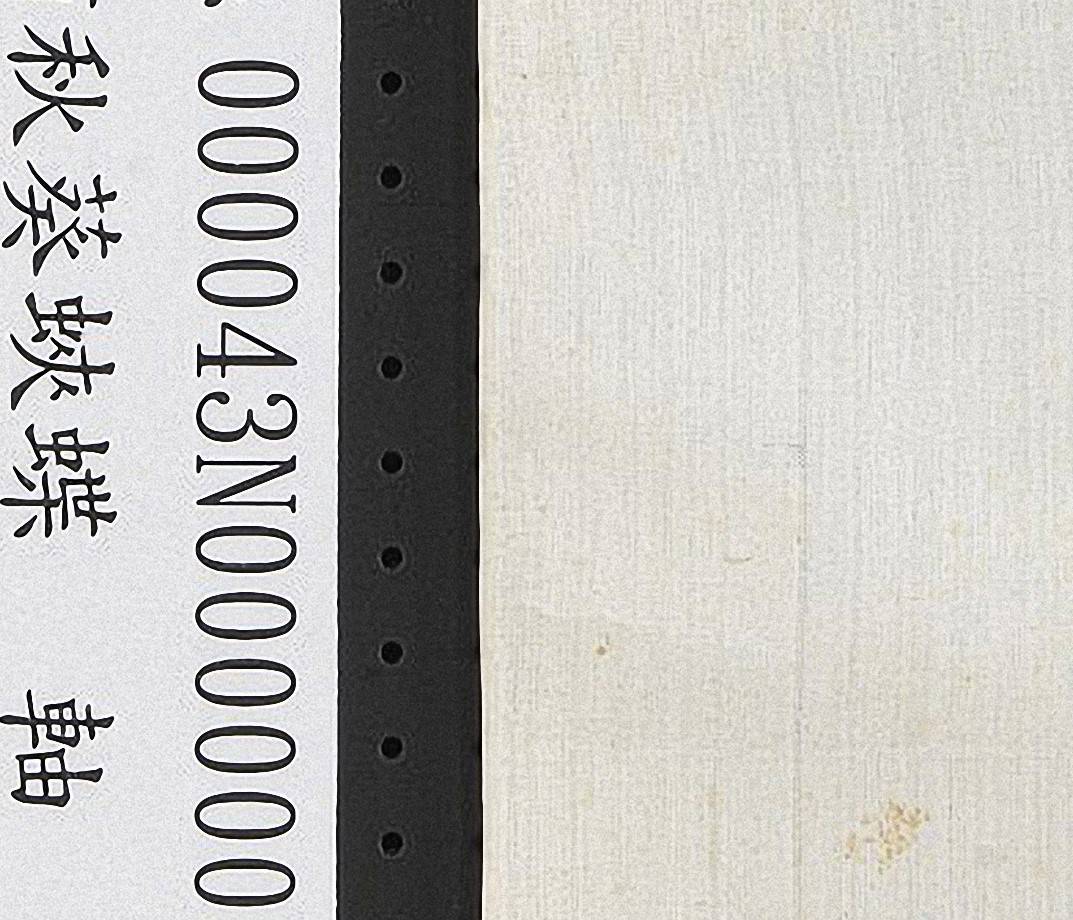 000043N000000
秋葵蛺蝶 軸